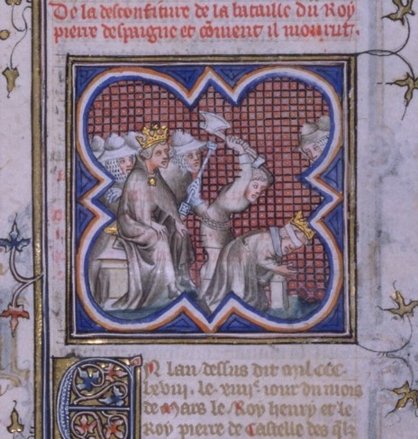 De la desconfiture de la bataille du Roy
pierre despaigne et coment il mourut.
En lan dessus dit mil CCC
lxviii. le xiiiie iour du mois
de Mars le Roy henry et le
Roy pierre de Castelle des